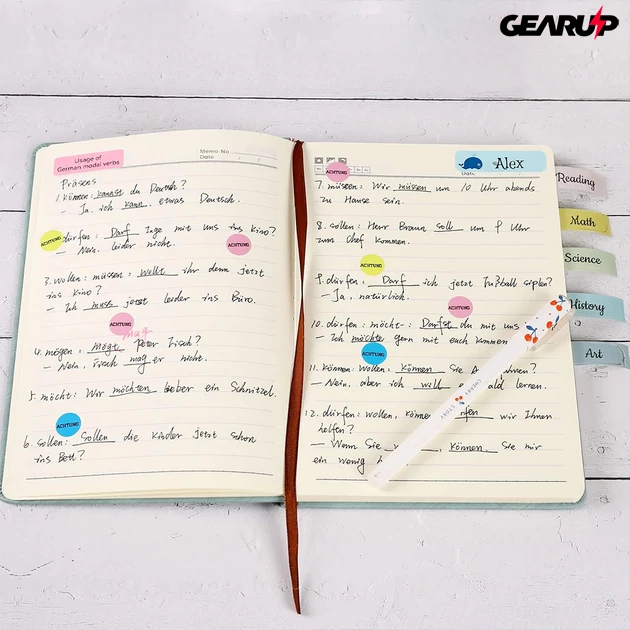 GEARUP
Usage of
German modal verbs
Memo No.
Date / /
Präsens
1. können: kannst du Deutsch?
– Ja, ich kann etwas Deutsch.
ACHTUNG
dürfen: Darf Inge mit uns ins Kino?
– Nein, leider nicht.
ACHTUNG
3. wollen: müssen: Wollt ihr denn jetzt
ins Kino?
– Ich muss jetzt leider ins Büro.
ACHTUNG
mag
4. mögen, Mögt Peter Fisch?
– Nein, Fisch mag er nicht.
5. möcht: Wir möchten lieber ein Schnitzel.
ACHTUNG
6. sollen: Sollen die Kinder jetzt schon
ins Bett?
ACHTUNG
Date
Alex
7. müssen: Wir müssen um 10 Uhr abends
zu Hause sein.
8. sollen: Herr Braun soll um 9 Uhr
zum Chef kommen.
ACHTUNG
9. dürfen: Darf ich jetzt Fußball siplen?
– Ja, natürlich.
ACHTUNG
10. dürfen: möcht-: Darfst du mit uns
– Ich möchte gern mit euch kommen
ACHTUNG
11. können: wollen: Können Sie
– Nein, aber ich will ald lernen.
12. dürfen: wollen, könne rfen wir Ihnen
helfen?
– Wenn Sie können Sie mir
ein wenig
CHERRY STORY
Reading
Math
Science
History
Art